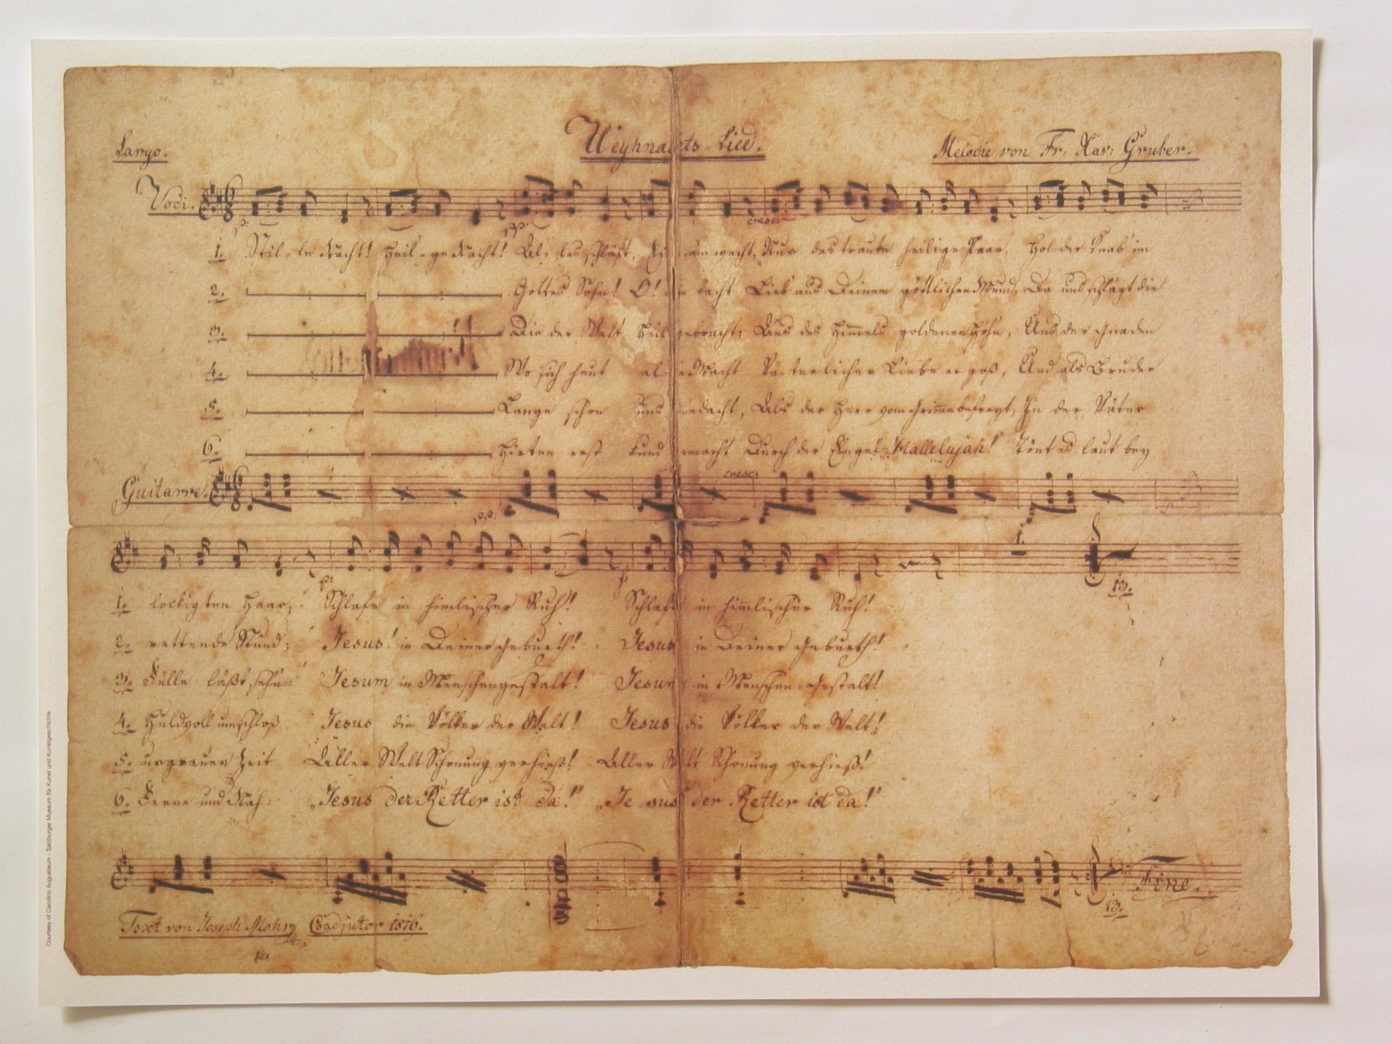 Largo. Weyhnachts-Lied. Melodie von Fr: Xav: Gruber.
Voci.
pp.
cresc:
1. Stil-le Nacht! Heil-ge Nacht! Al-les schläft, Ei- am wacht, Nur das traute heilige Paar, Holder Knab' im
2. Gottes Sohn! O! wie lacht Lieb' aus Deinem göttlichen Mund, Da uns schlägt die
3. Die der Welt Heil gebracht; Aus des Himmels goldenen Höhn, Aus der Gnaden
4. Wo sich heut al- le Macht Väterlicher Liebe ergoß, Und als Bruder
5. Lange schon uns bedacht, Als der Herr vom Grimme befreyt, In der Väter
6. Hirten erst kund gemacht Durch der Engel Hallelujah! Tönt es laut bey
cresc:
Guitarre.
pp.
1. lockigten Haar; Schlafe in himlischer Ruh! Schlafe in himlischer Ruh!
2. rettende Stund; Jesus! in Deiner Geburth! Jesus in Deiner Geburth!
3. Fülle läßt sehn Jesum in Menschengestalt! Jesum in Menschen-Gestalt!
4. Huldvoll umschloß Jesus die Völker der Welt! Jesus die Völker der Welt!
5. urgrauer Zeit Aller Welt Schonung verhieß! Aller Welt Schonung verhieß!
6. Ferne und Nah: „Jesus der Retter ist da!" „Jesus der Retter ist da!"
Fine.
Text von Joseph Mohr Coadjutor 1816.
Courtesy of Carolino Augusteum - Salzburger Museum für Kunst und Kulturgeschichte